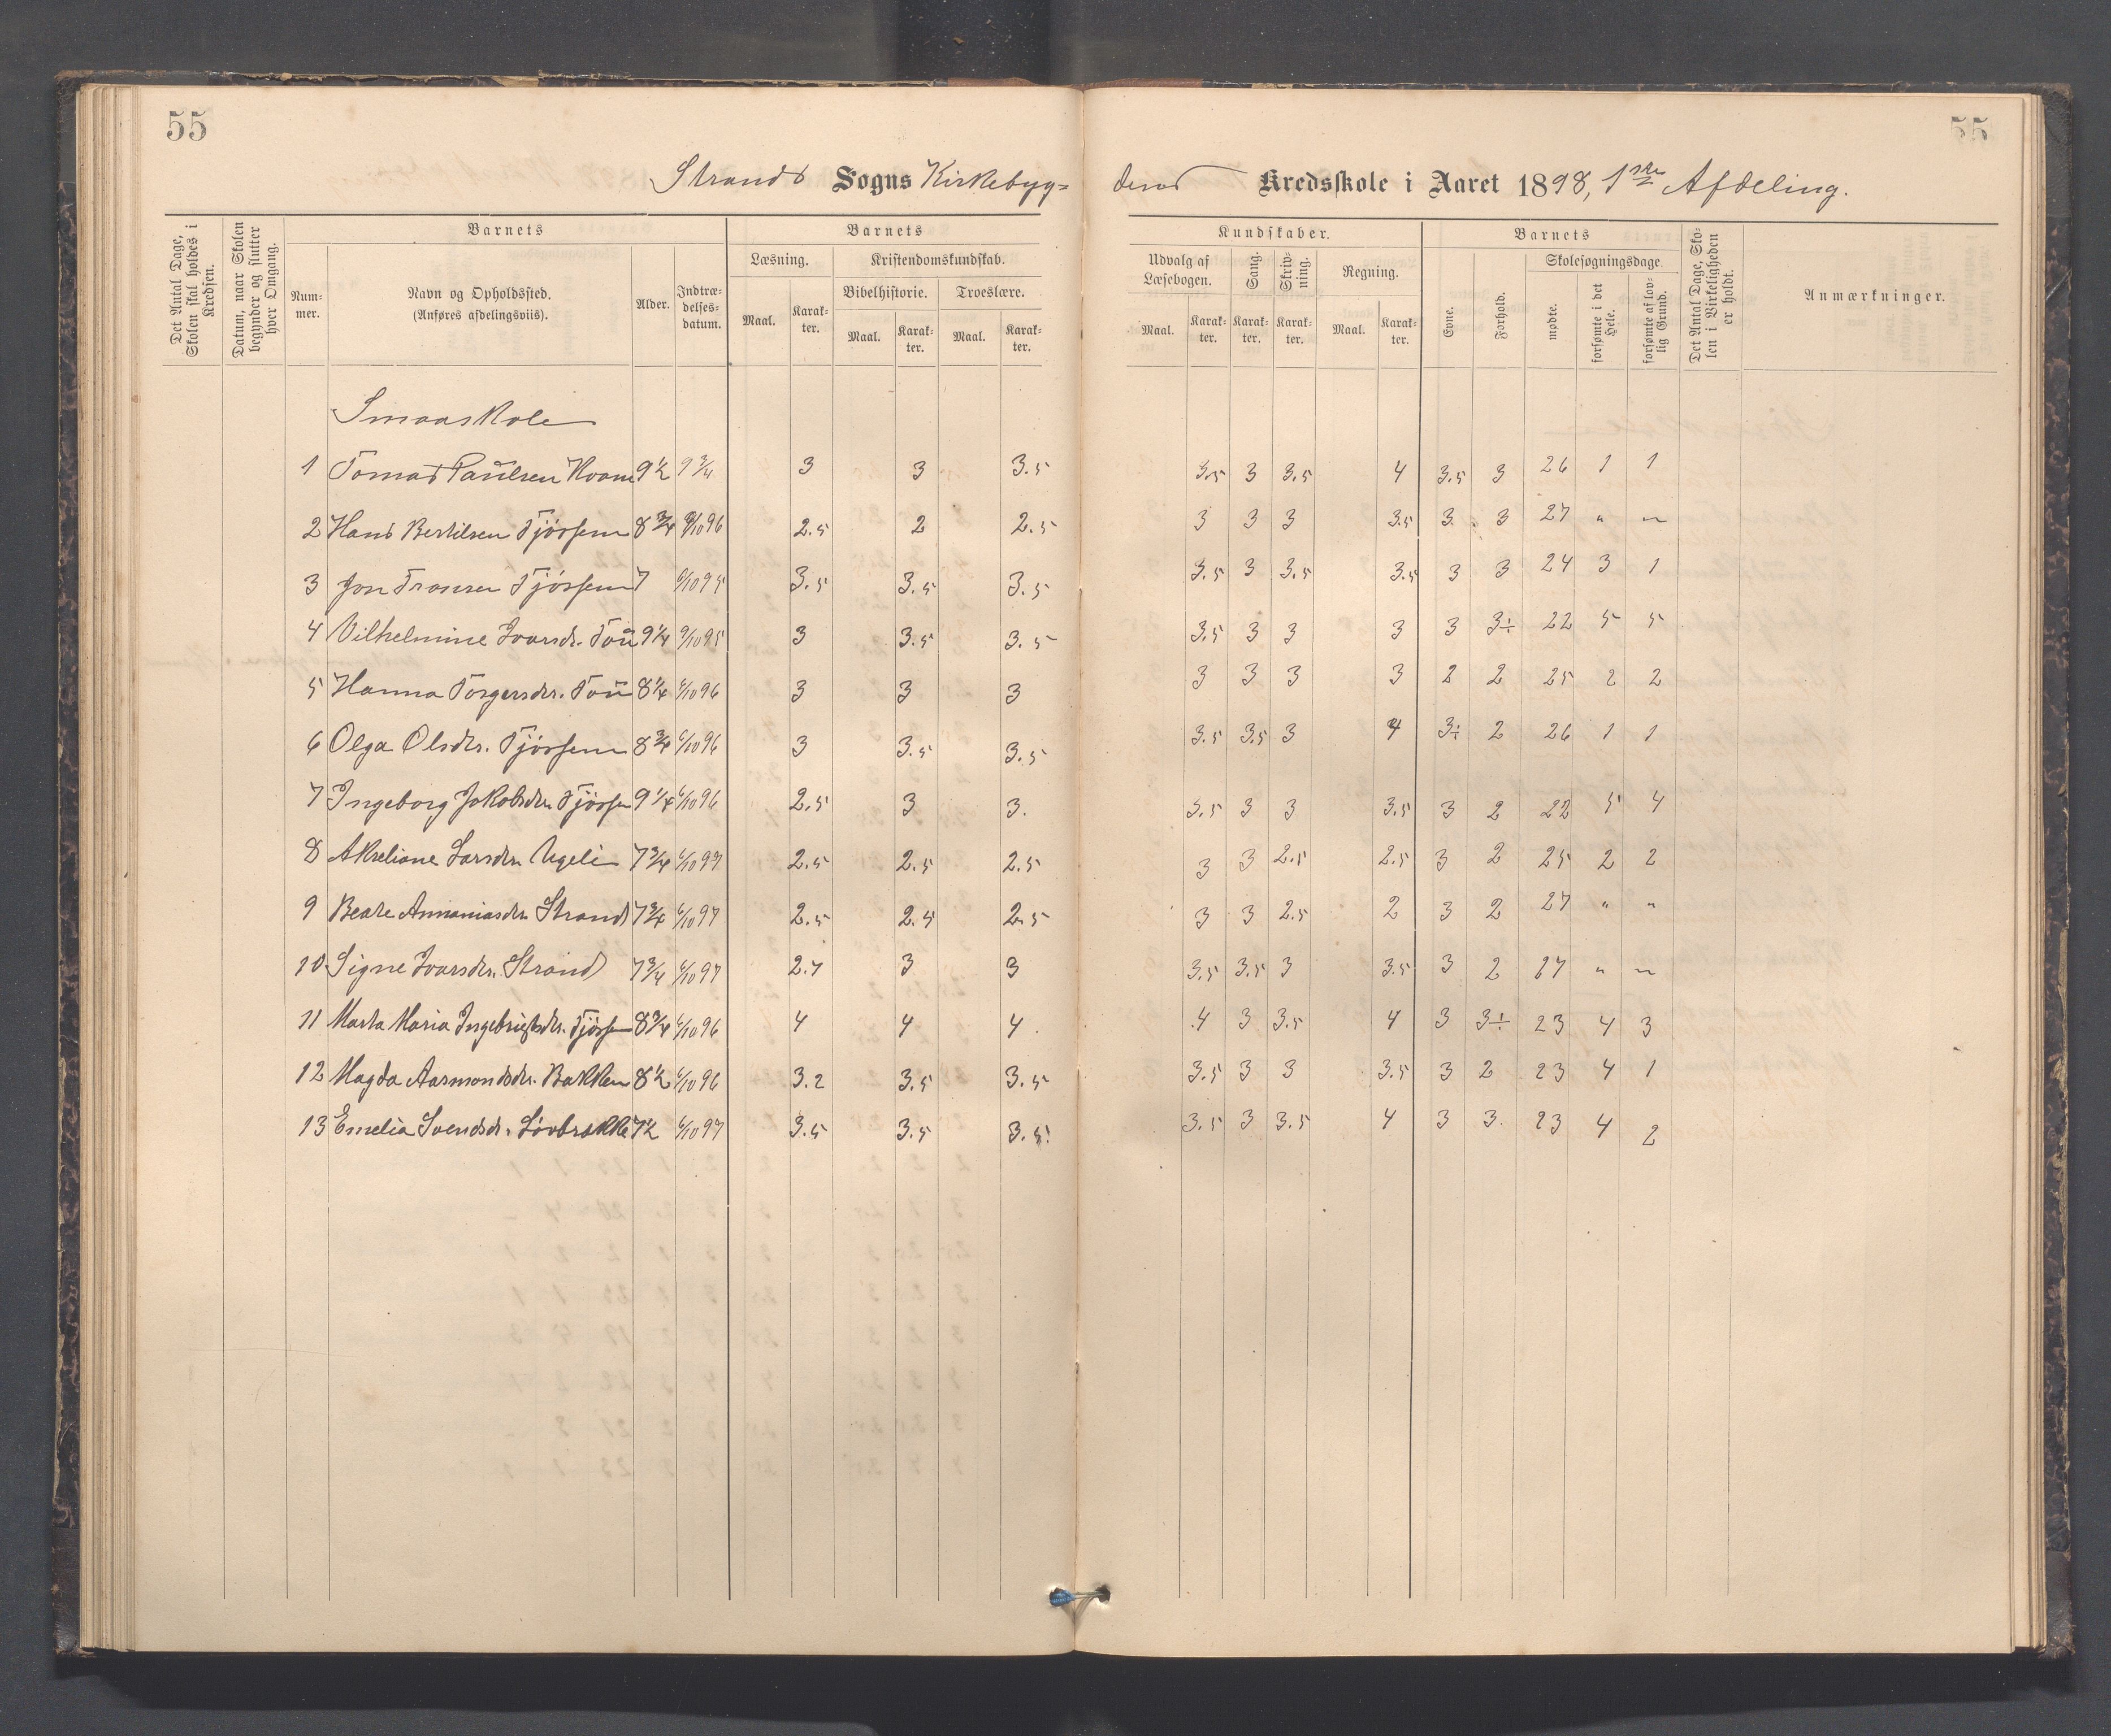 55
55
Strands Sogns Kirkebyg=
dens Kredsskole i Aaret 1898, 1ste Afdeling.
Det Antal Dage, Skolen skal holdes i Kredsen.
Datum, naar Skolen begynder og slutter hver Omgang.
Barnets
Nummer.
Navn og Opholdssted.
(Anføres afdelingsviis).
Alder.
Indtrædelses-datum.
Barnets
Læsning.
Maal.
Karakter.
Kristendomskundskab.
Bibelhistorie.
Maal.
Karakter.
Troeslære.
Maal.
Karakter.
Kundskaber.
Udvalg af Læsebogen.
Maal.
Karakter.
Sang.
Karakter.
Skrivning.
Karakter.
Regning.
Maal.
Karakter.
Barnets
Evne.
Forhold.
Skolesøgningsdage.
mødte.
forsømte i det Hele.
forsømte af lovlig Grund.
Det Antal Dage, Skolen i Virkeligheden er holdt.
Anmærkninger.
Smaaskole
1 Tomas Paulsen 9½ 9 3/4 3 3 3.5 3.5 3 3.5 4 3.5 3 26 1 1
2 Hans Bertilsen Tjøssem 8¾ 96 2.5 2 2.5 3 3 3 3.5 3. 3 27 " "
3 Jon Tjøssem 7 9/10 95 3.5 3.5 3.5 3.5 3 3.5 3.5 3 3 24 3 1
4 Vilhelmine Ivarsdr. Tou 9¼ 9/10 95 3 3.5 3.5 3.5 3 3 3 3 3÷ 22 5 5
5 Hanna Torgersdr. Tou 8¼ 6/10 96 3 3 3 3 3 3 3 2 2 25 2 2
6 Olga Olsdtr. Tjøssem 8¾ 6/10 96 3 3.5 3.5 3.5 3.5 3 4 3÷ 2 26 1 1
7 Ingeborg Jakobsdtr. Tjøssem 9¼ 6/10 96 2.5 3 3. 3.5 3 3 3.5 3 2 22 5 4
8 Akseliane Larsdtr. 7¾ 6/10 97 2.5 2.5 2.5 3 3 2.5 2.5 3 2 25 2 2
9 Beate Annaniasdtr. Strand 7¾ 6/10 97 2.5 2.5 2.5 3 3 2.5 2 3 2 27 " "
10 Signe Ivarsdtr. Strand 7¾ 6/10 97 2.7 3 3 3.5 3.5 3 3.5 3 2 27 " "
11 Marta Maria Ingebrigtsdtr. Tjøssem 8¾ 6/10 96 4 4 4. 4 3 3.5 4 3 3÷ 23 4 3
12 Magda Aasmundsdtr. Bakken 8½ 6/10 96 3.2 3.5 3.5 3.5 3 3 3.5 3 2 23 4 1
13 Emelia Svendsdr. Løvbrække 7½ 6/10 97 3.5 3.5 3.5 3.5 3 3.5 4 3 3. 23 4 2